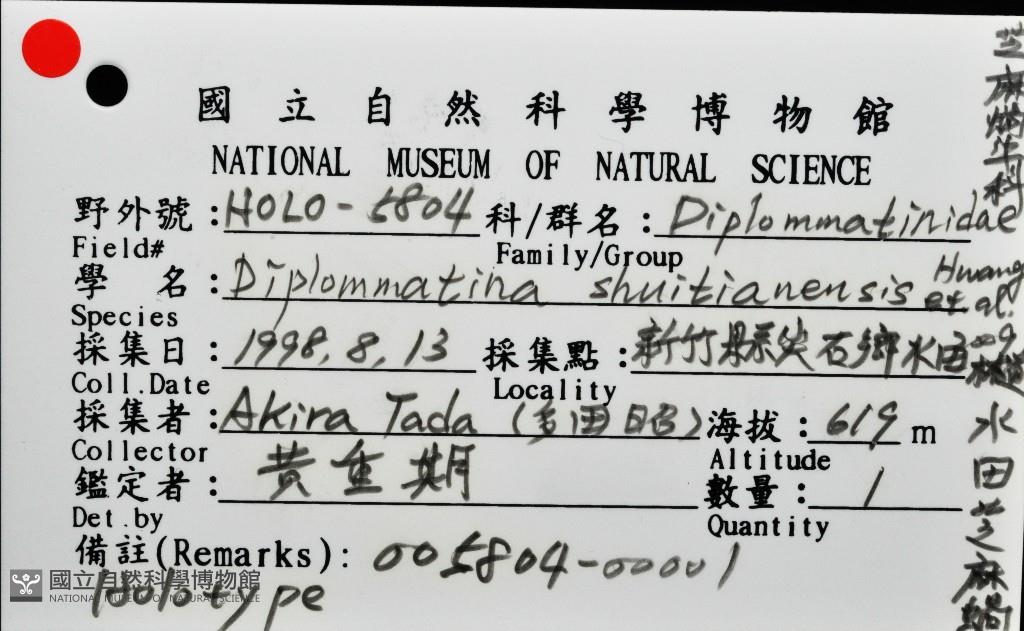 國立自然科學博物館
NATIONAL MUSEUM OF NATURAL SCIENCE
野外號：HOLO-5804 科/群名：Diplommatinidae
Field# Family/Group
學 名：Diplommatina shuitianensis Hwang et al.
Species
採集日：1998.8.13 採集點：新竹縣尖石鄉水田林道
Coll.Date Locality
採集者：Akira Tada (多田昭) 海拔：619 m
Collector Altitude
鑑定者：黃重期 數量：1
Det.by Quantity
備註(Remarks): 005804-00001
Holotype
芝麻蝸牛科
水田芝麻蝸
國立自然科學博物館
NATIONAL MUSEUM OF NATURAL SCIENCE